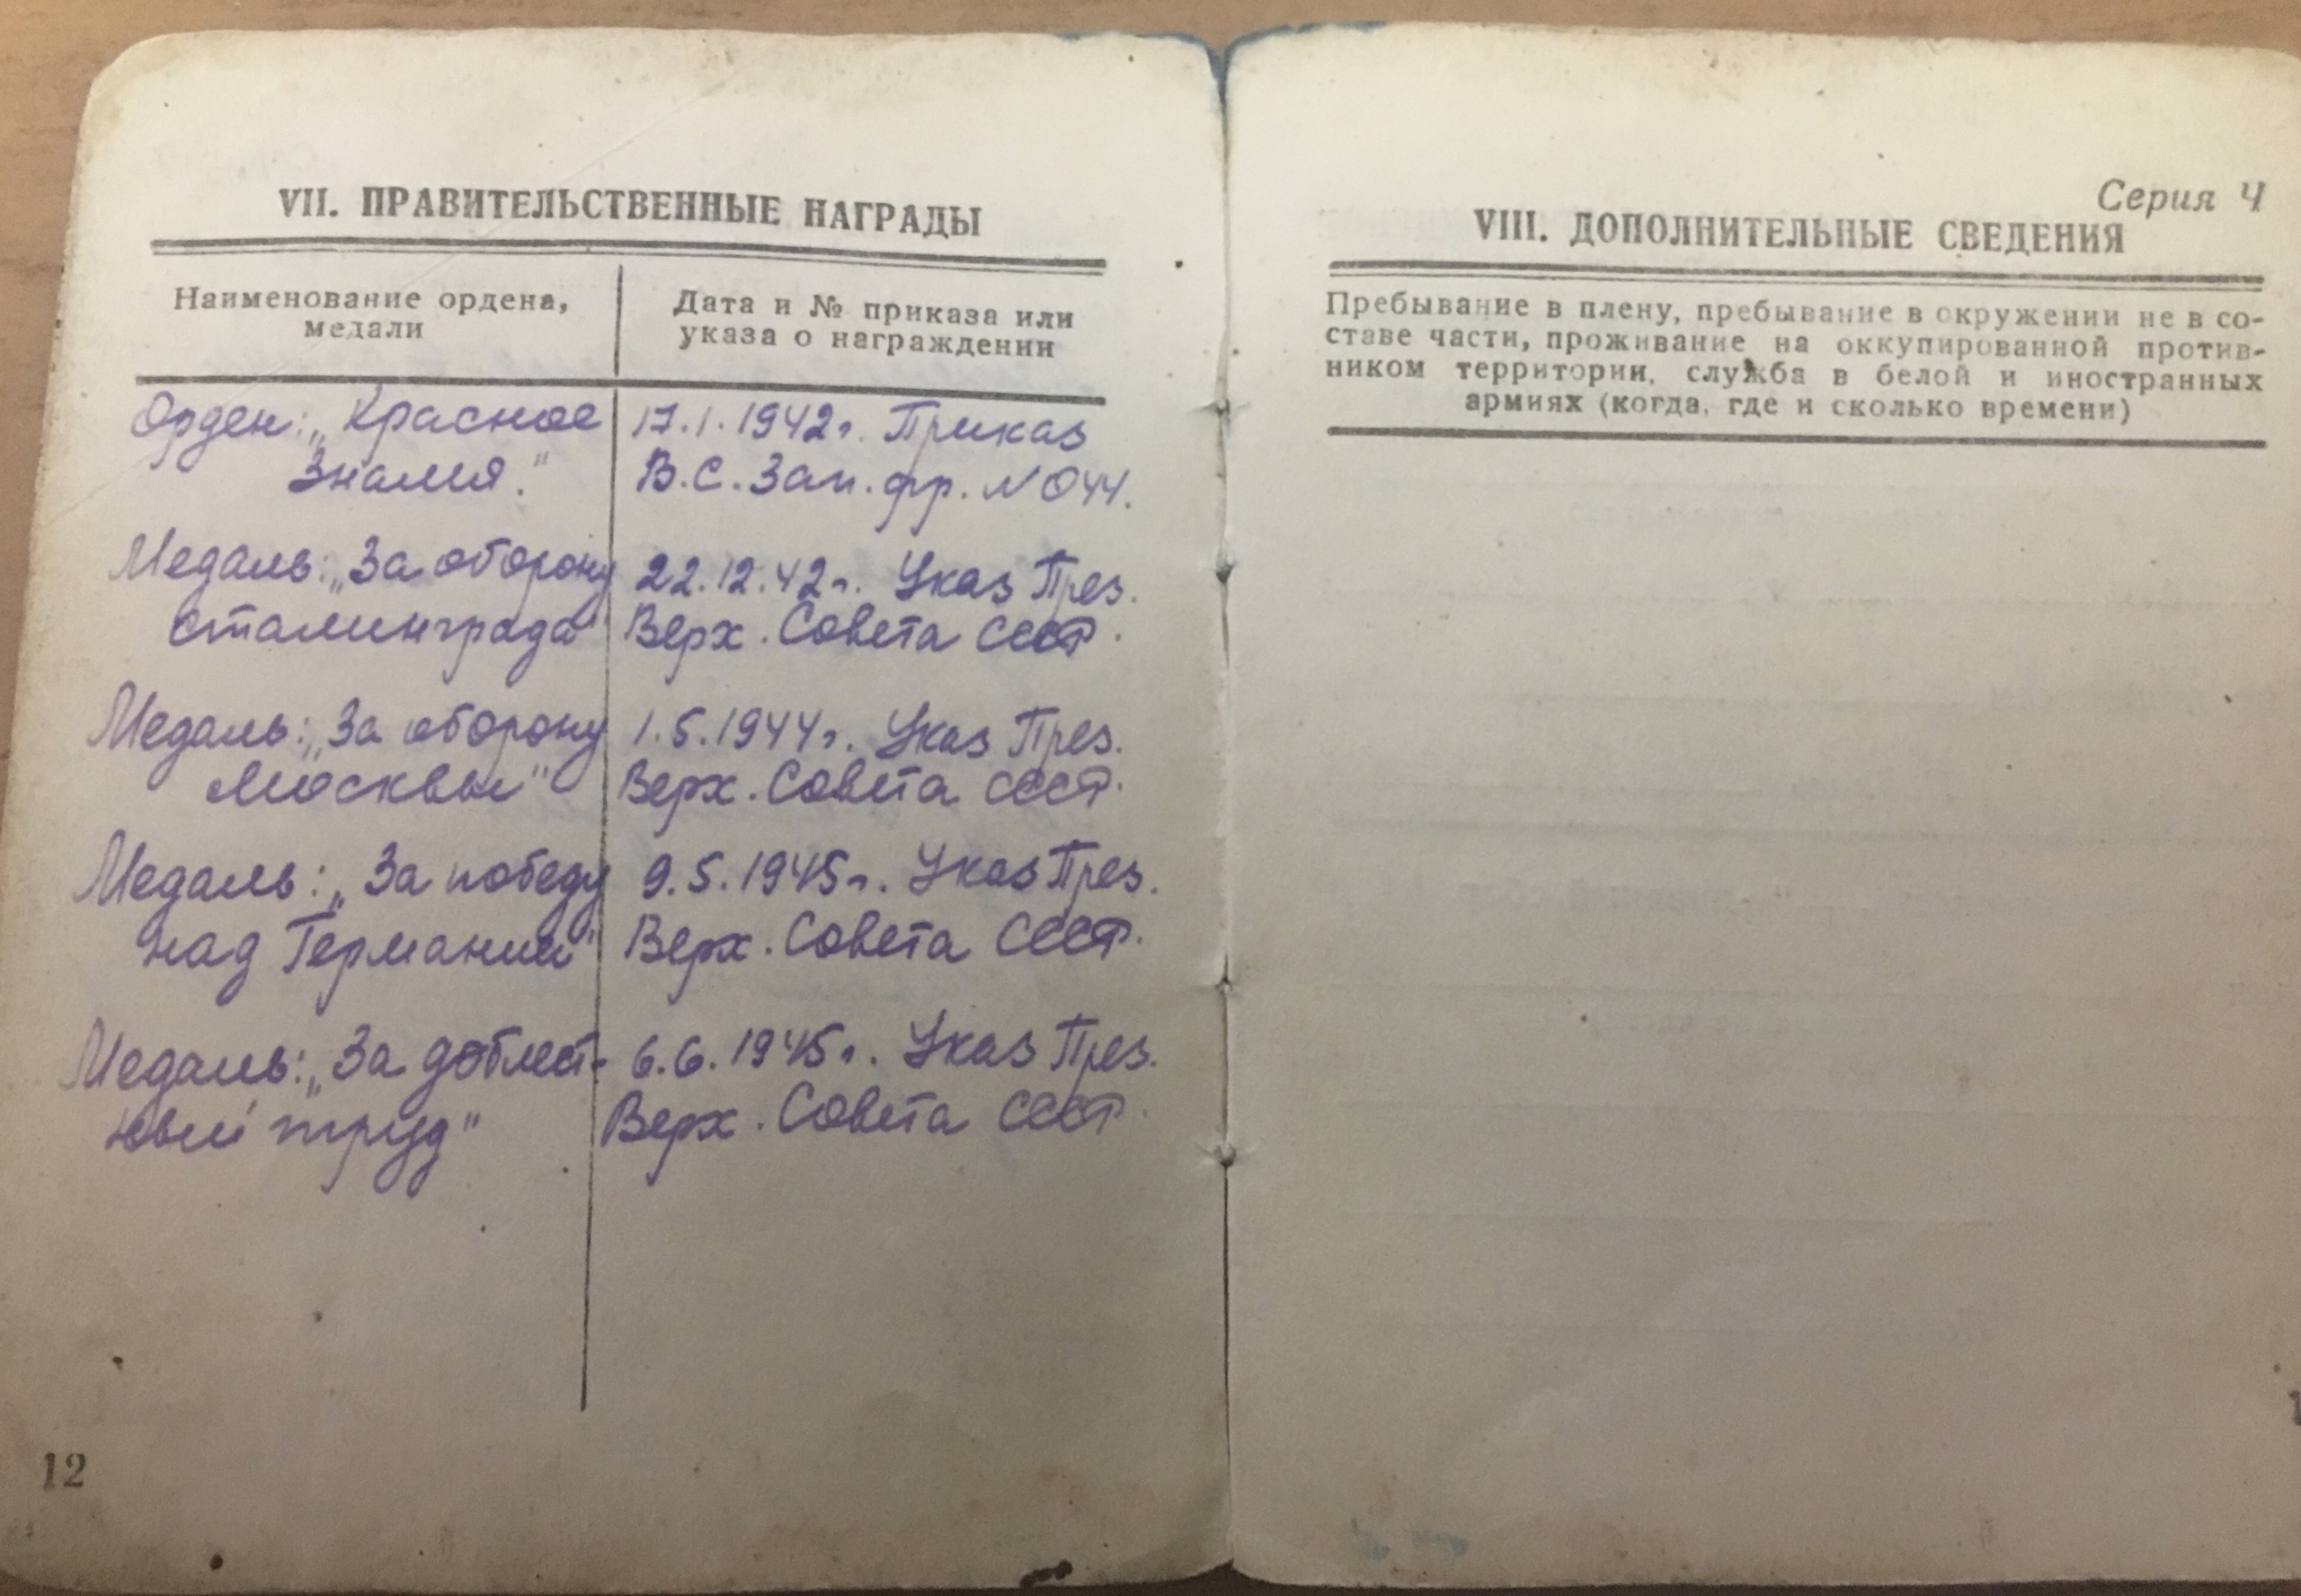 VII. ПРАВИТЕЛЬСТВЕННЫЕ НАГРАДЫ
Наименование ордена,
медали
Дата и № приказа или
указа о награждении
Орден: „Красное
Знамя."
17.1.1942г. Приказ
В.С. Зап. фр. N 044.
Медаль: „За оборону
Сталинграда"
22.12.42г. Указ През.
Верх. Совета СССР.
Медаль: „За оборону
Москвы"
1.5.1944г. Указ През.
Верх. Совета СССР.
Медаль: „За победу
над Германией"
9.5.1945г. Указ През.
Верх. Совета СССР.
Медаль: „За доблест-
ный труд"
6.6.1945г. Указ През.
Верх. Совета СССР
12
Серия Ч
VIII. ДОПОЛНИТЕЛЬНЫЕ СВЕДЕНИЯ
Пребывание в плену, пребывание в окружении не в со-
ставе части, проживание на оккупированной против-
ником территории, служба в белой и иностранных
армиях (когда, где и сколько времени)